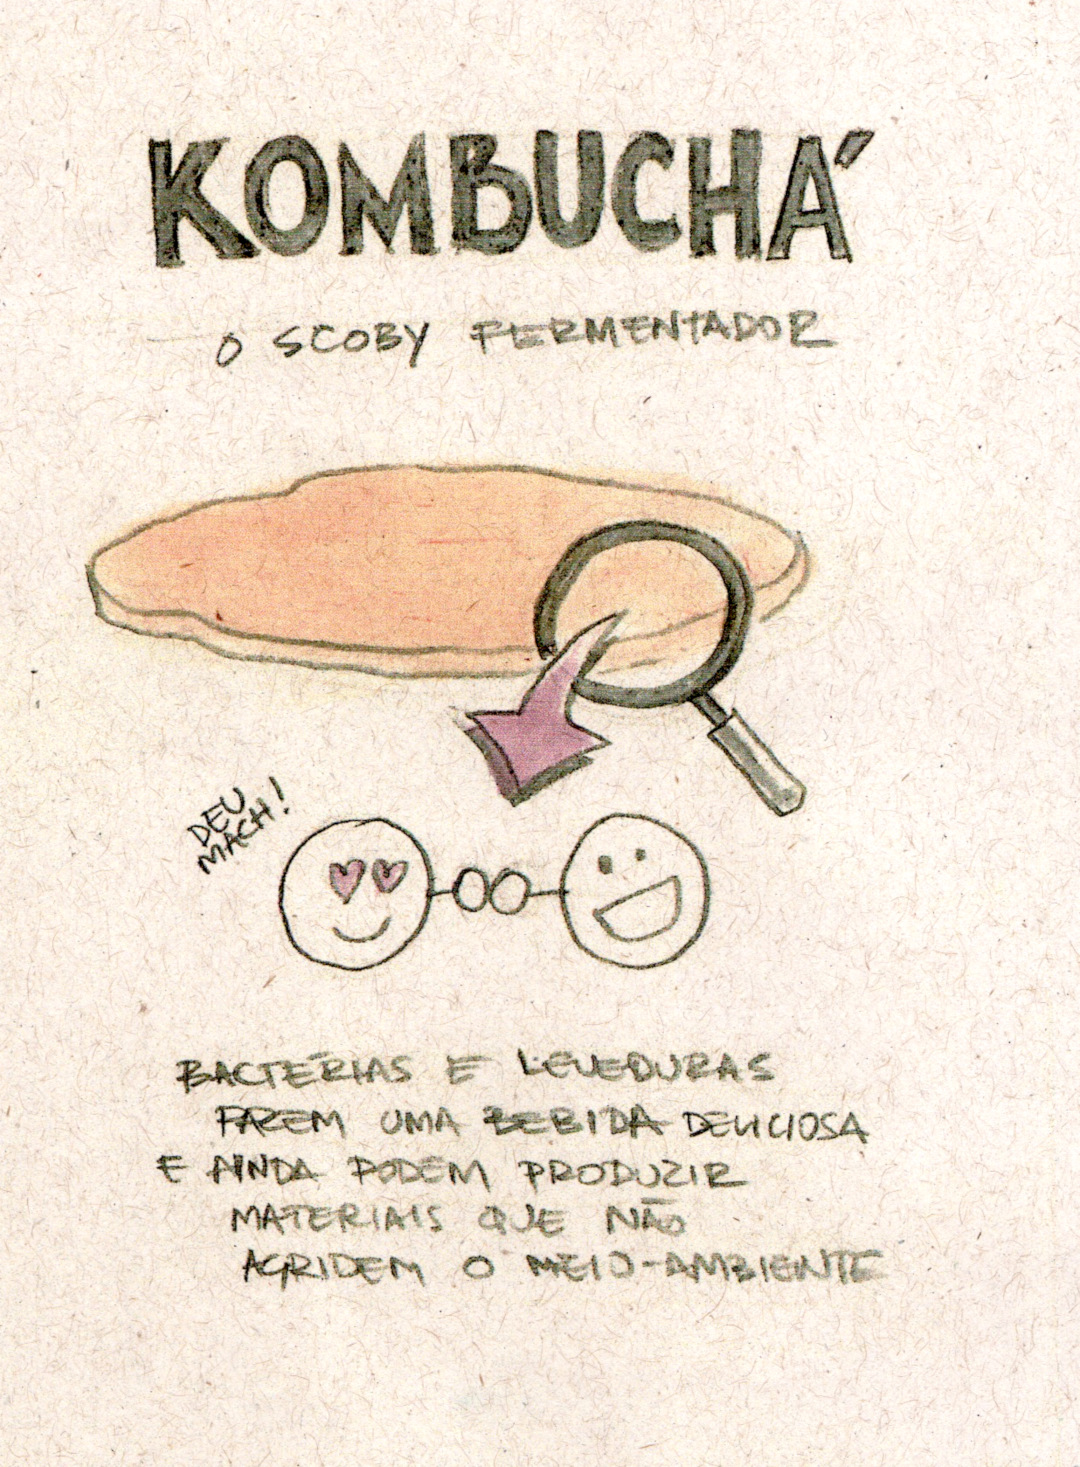 KOMBUCHÁ
O SCOBY FERMENTADOR
DEU
MACH!
BACTÉRIAS E LEVEDURAS
FAZEM UMA BEBIDA DELICIOSA
E AINDA PODEM PRODUZIR
MATERIAIS QUE NÃO
AGRIDEM O MEIO-AMBIENTE